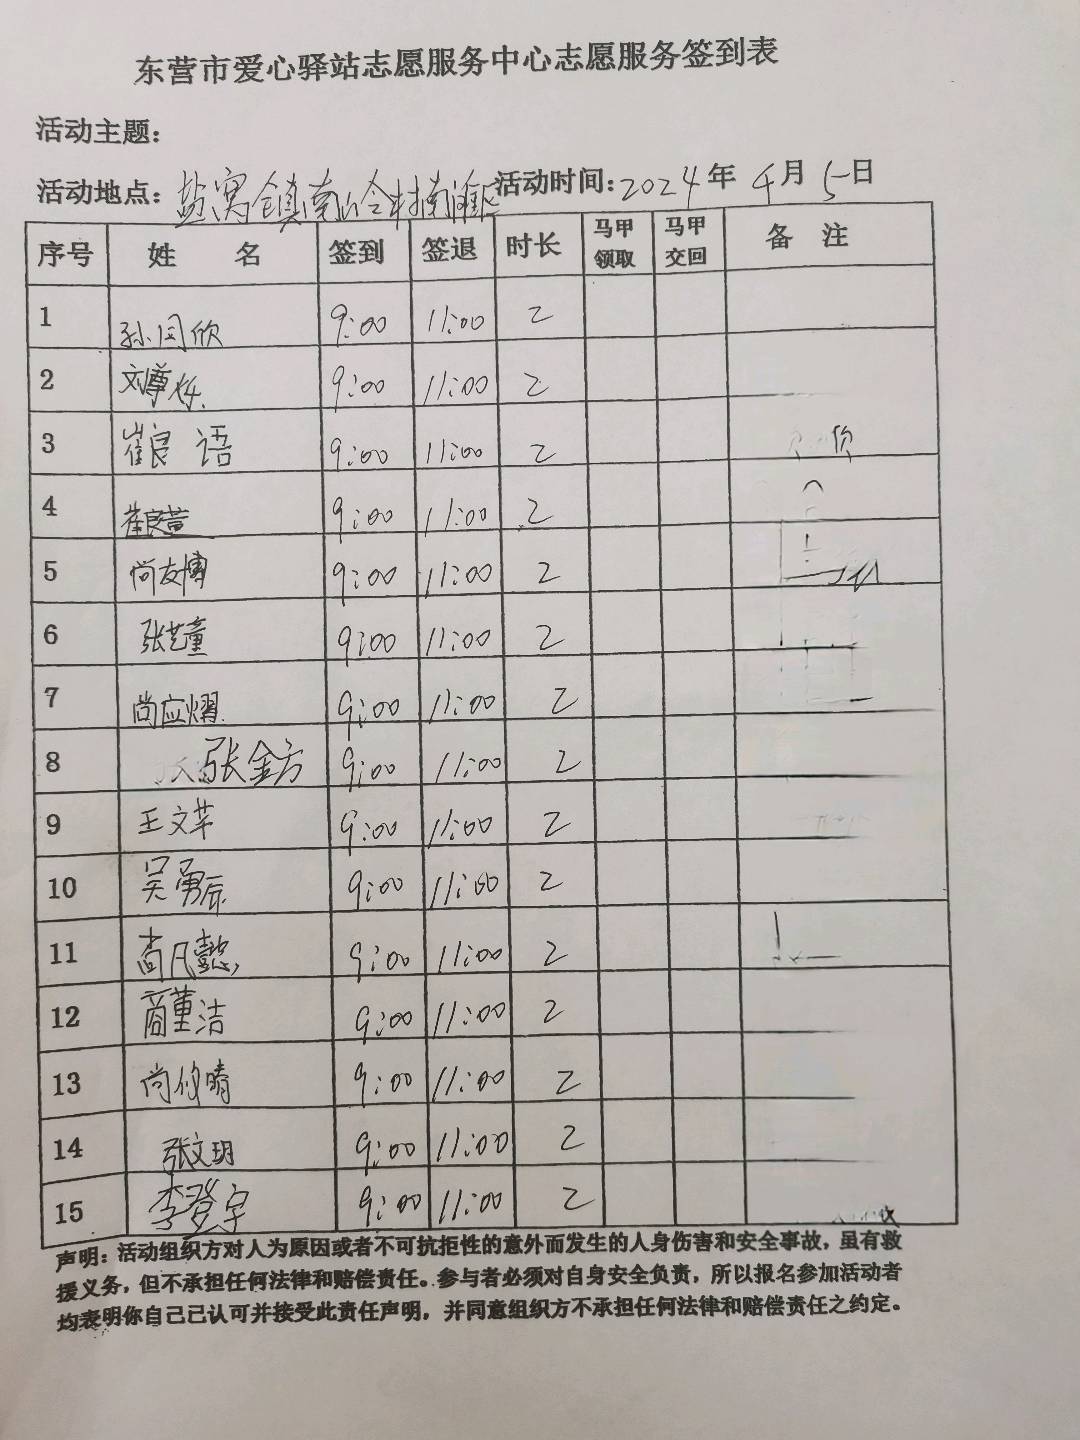 东营市爱心驿站志愿服务中心志愿服务签到表
活动主题:
活动地点: 盐窝镇南岭村南 活动时间: 2024年 4月 5日
序号 姓 名 签到 签退 时长 马甲领取 马甲交回 备 注
1 孙国欣 9:00 11:00 2
2 刘尊 9:00 11:00 2
3 崔良语 9:00 11:00 2
4 崔良萱 9:00 11:00 2
5 尚友博 9:00 11:00 2
6 张艺童 9:00 11:00 2
7 尚应熠 9:00 11:00 2
8 张金方 9:00 11:00 2
9 王文苹 9:00 11:00 2
10 吴勇辰 9:00 11:00 2
11 尚凡懿 9:00 11:00 2
12 商董洁 9:00 11:00 2
13 尚晴 9:00 11:00 2
14 张文玥 9:00 11:00 2
15 李登宇 9:00 11:00 2
声明：活动组织方对人为原因或者不可抗拒性的意外而发生的人身伤害和安全事故，虽有救
援义务，但不承担任何法律和赔偿责任。参与者必须对自身安全负责，所以报名参加活动者
均表明你自己己认可并接受此责任声明，并同意组织方不承担任何法律和赔偿责任之约定。